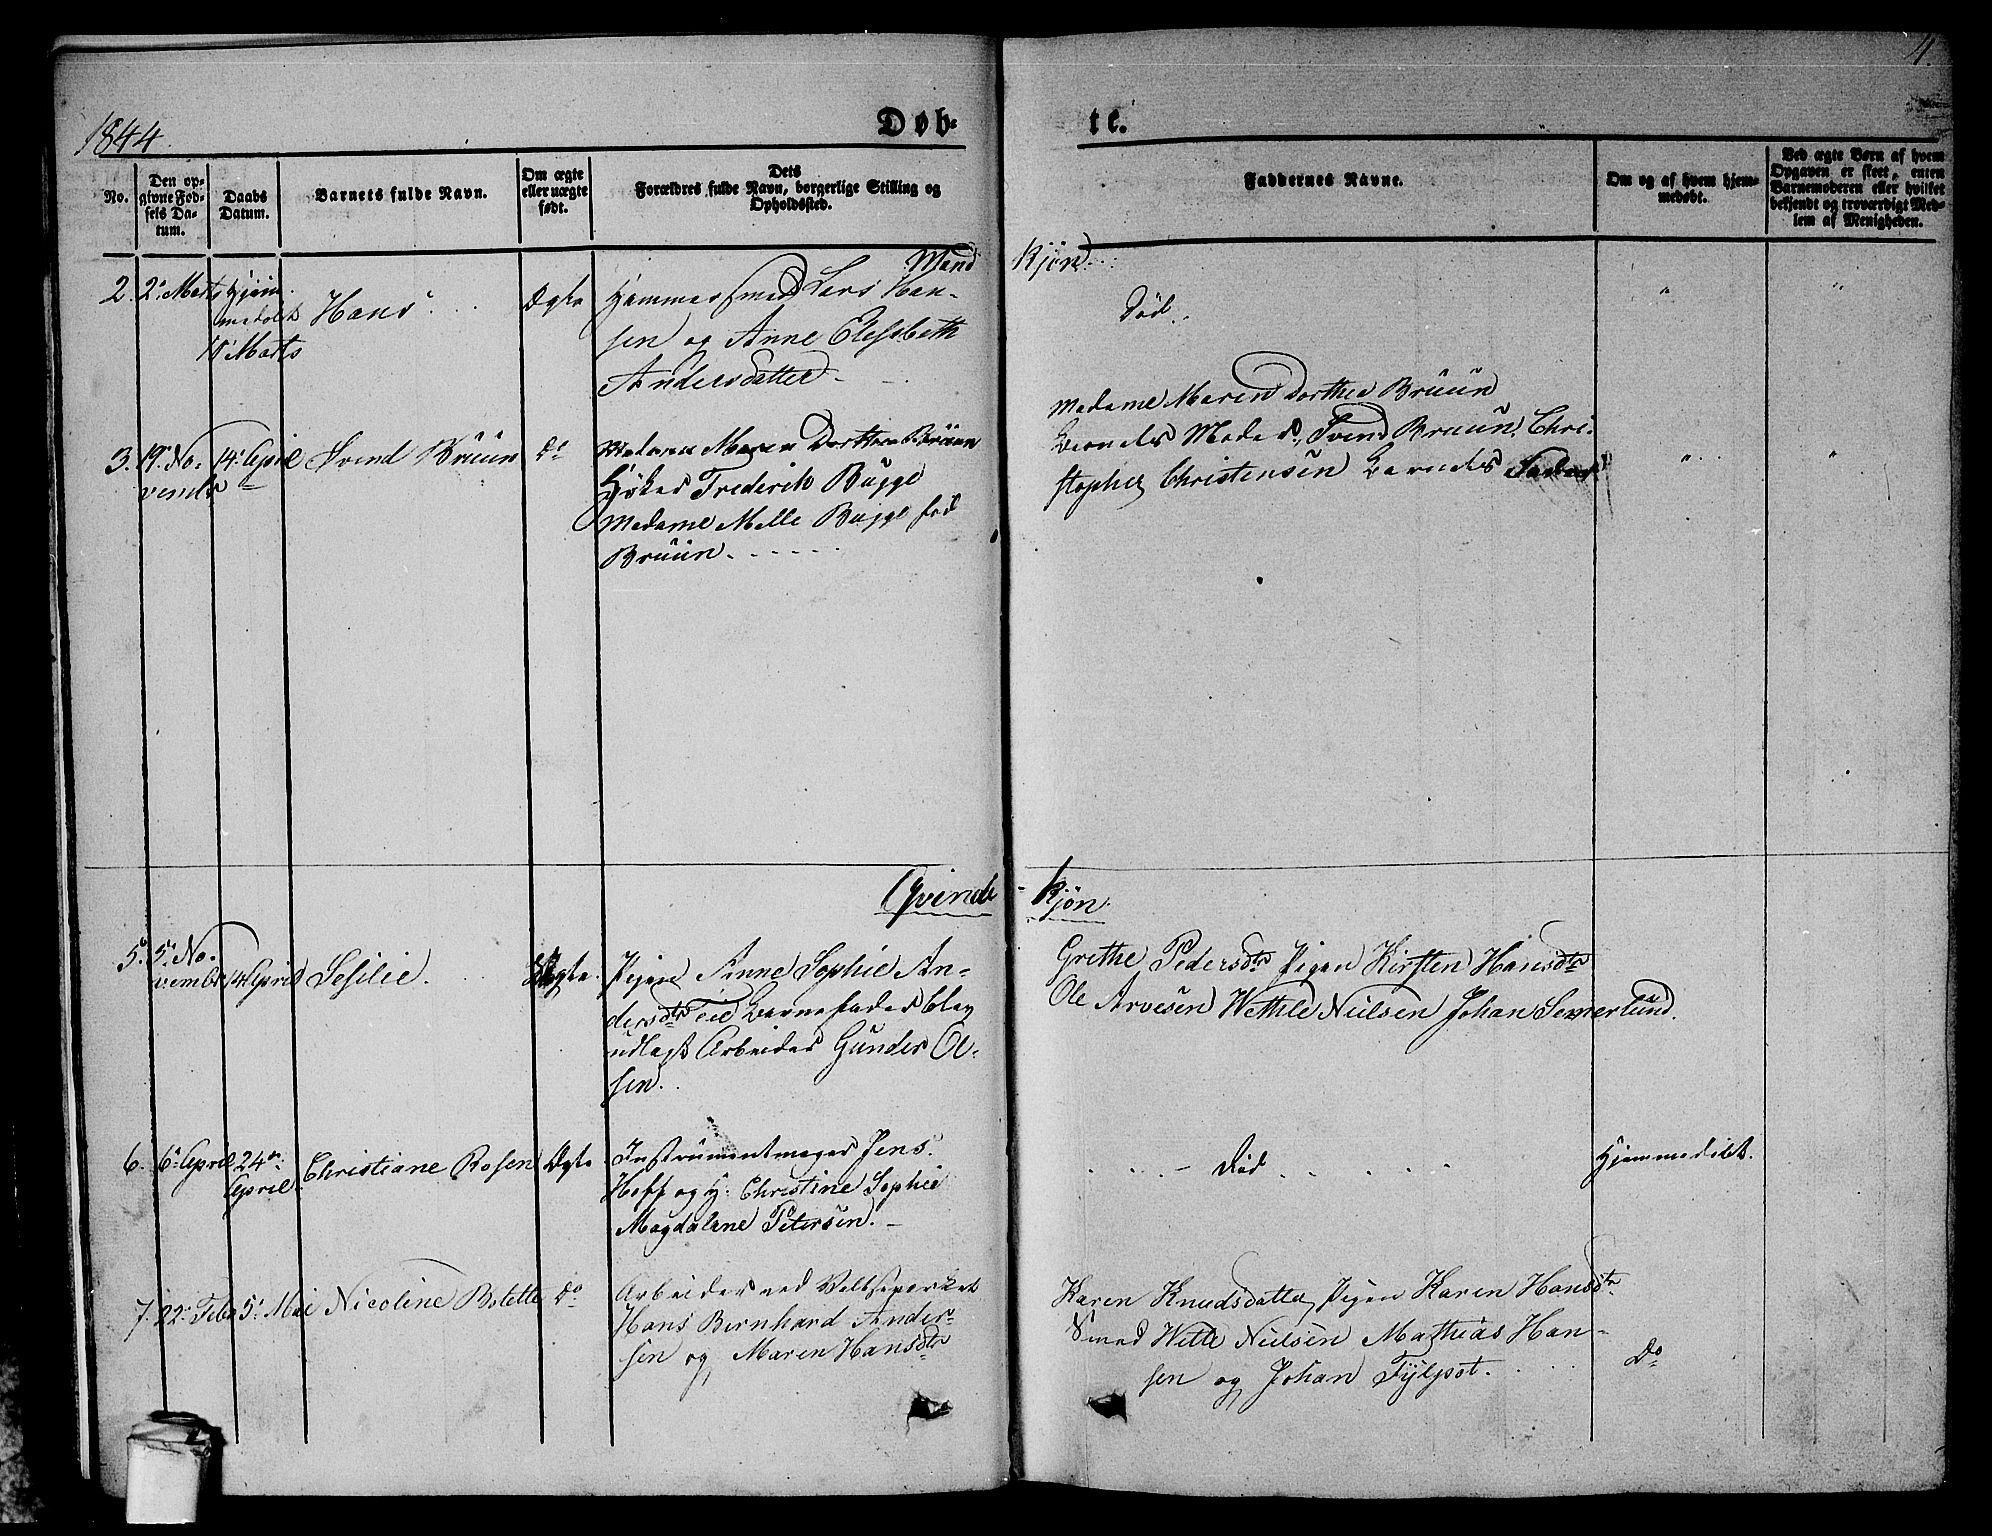 1844.
4.
Døb-te.
No.
Den op-
givne Fød-
sels Da-
tum.
Daabs
Datum.
Barnets fulde Navn.
Om ægte
eller uægte
født.
Dets
Forældres fulde Navn, borgerlige Stilling og
Opholdssted.
Faddernes Navne.
Om og af hvem hjem-
medøbt.
Ved ægte Børn af hvem
Opgaven er skeet, enten
Barnemoderen eller hvilket
bekjendt og troværdigt Med-
lem af Menigheden.
Mand Kjøn
2. 2' Marts Hjem-
medøbt
Marts
Hans
Ægte
Hammersmed Lars Han-
sen og Anne Elisabeth
Andersdatter
Død.
" "
3. 19' No-
vember
14' April
Svend Brüün
Do
Madame Maren Dorthea Brüün
Høker Frederik Bugge
Madame Melle Bugge fød
Brüün
Madame Maren Dorthea Brüün
Svend Bruun, Chri-
stopher Christensen
" "
Qvinde - Kjøn.
5. 5' No-
vember
14 April
Sesilie.
Uægte.
Pigen Anne Sophie An-
dersdtr Barnefader blev
udlagt Arbeider Gunder Ol-
sen.
Grethe Pedersdtr Pigen Kirsten Hansdtr
Ole Arvesen Wethle Nielsen Johan Semerlund.
6. 6' April
24de
April
Christiane Rosen
Ægte
Instrumentmager Jens
Hoff og H: Christine Sophie
Magdalene Petersen.
Død
Hjemmedøbt.
7. 22' Feb. 5' Mai
Nicoline Botette
Do
Arbeider ved
Hans Bernhard Ander-
sen og Maren Hansdtr
Karen Knudsdatter Pigen Karen Hansdtr
Smed Wetle Nielsen Mathias Han-
sen og Johan
Do